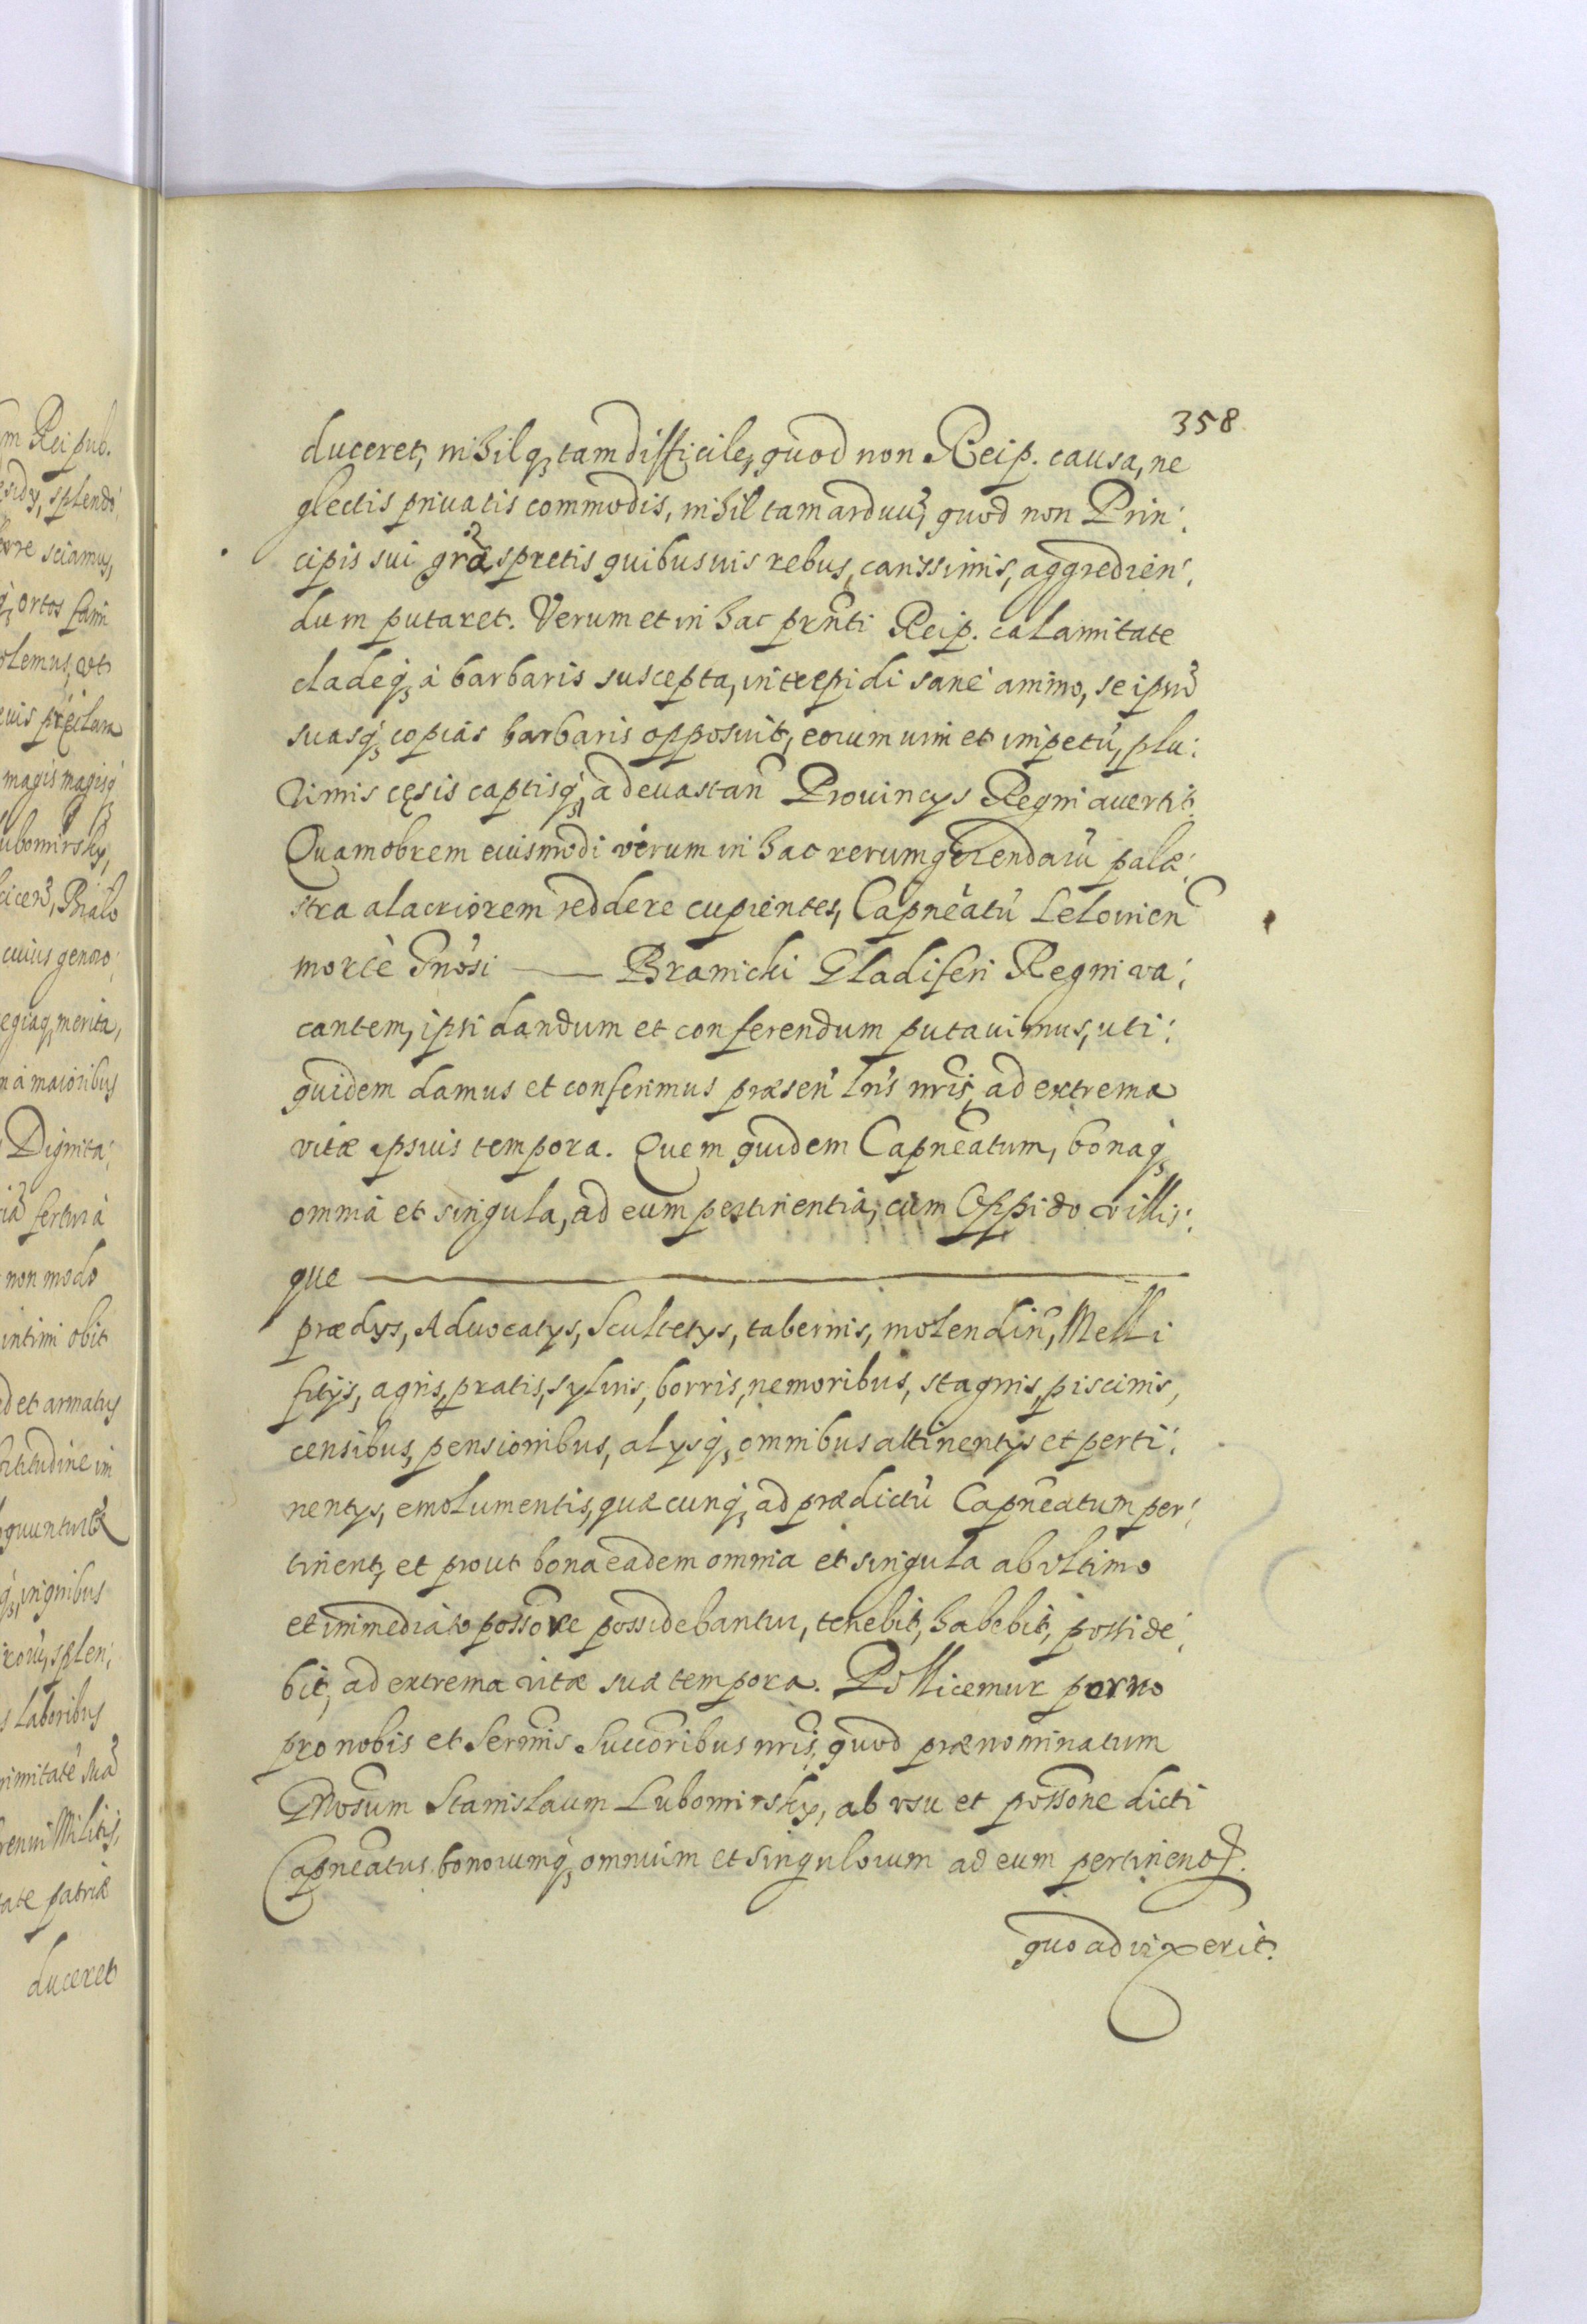 358
duceret, nihilq₃ tam difficile, quod non Reip. causa, ne
glectis priuatis commodis, nihil tam arduũ, quod non Prin:
cipis sui grã spretis quibusuis rebus, carissimis, aggredien:
dum putaret. Verum et in hac prñti Reip. calamitate
cladeq₃ à barbaris suscepta, intrepidi sanè animo, se ipm̃
suasq₃ copias barbaris opposuit, eorum uim et impetũ, plu:
rimis cęsis captisq₃, a deuastan̄ Prouincys Regni auertit.
Quamobrem eiusmodi virum in hac rerum gerendarũ palæ:
stra alacriorem reddere cupientes, Capnēatũ Lelouien̄
morte Gnōsi —— Branicki Gladiferi Regni va:
cantem, ipsi dandum et conferendum putauimus, uti:
quidem damus et conferimus præsen̄ lr̄is nr̄is, ad extrema
vitæ ipsius tempora. Quem quidem Capnēatum, bonaq₃
omnia et singula, ad eum pertinentia, cum Oppido villis:
que ——
prædys, Aduocatys, Scultetys, tabernis, molendin̄, Melli
fitys, agris, pratis, syluis, borris, nemoribus, stagnis, piscinis,
censibus, pensionibus, alysq₃ omnibus attinentys et perti:
nentys, emolumentis, quæcunq₃ ad prædictũ Capnēatum per:
tinent, et prout bona eadem omnia et singula ab vltimo
et immediato possōre possidebantur, tenebit, habebit, posside:
bit, ad extrema vitæ suæ tempora. Pollicemur porro
pro nobis et Serm̄is Succōribus nr̄is, quod prænominatum
Gnōsum Stanislaum Lubomirsky, ab vsu et possōne dicti
Capnēatus bonorumq₃ omnium et singulorum ad eum pertinent.
quoad vixerit.
m Rei pub.
splendo
ore sciamus,
q₃ ortos fami
olemus, et
magis magisq₃
ubomirsky,
cuius genero:
egiaq₃ merita,
n à maioribus
Dignita:
fertur à
non modo
intimi obit
d et armatus
titudine in
q₃ insignibus
splen:
s laboribus
Militis,
tate patriæ
duceret